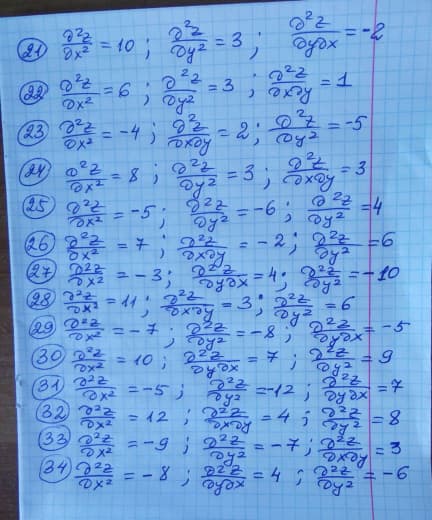 21 ∂²z/∂x² = 10 ; ∂²z/∂y² = 3 ; ∂²z/∂y∂x = -2
22 ∂²z/∂x² = 6 ; ∂²z/∂y² = 3 ; ∂²z/∂x∂y = 1
23 ∂²z/∂x² = -4 ; ∂²z/∂x∂y = 2 ; ∂²z/∂y² = -5
24 ∂²z/∂x² = 8 ; ∂²z/∂y² = 3 ; ∂²z/∂x∂y = 3
25 ∂²z/∂x² = -5 ; ∂²z/∂y² = -6 ; ∂²z/∂y² = 4
26 ∂²z/∂x² = 7 ; ∂²z/∂x∂y = -2 ; ∂²z/∂y² = 6
27 ∂²z/∂x² = -3 ; ∂²z/∂y∂x = 4 ; ∂²z/∂y² = -10
28 ∂²z/∂x² = 11 ; ∂²z/∂x∂y = 3 ; ∂²z/∂y² = 6
29 ∂²z/∂x² = -7 ; ∂²z/∂y² = -8 ; ∂²z/∂y∂x = -5
30 ∂²z/∂x² = 10 ; ∂²z/∂y∂x = 7 ; ∂²z/∂y² = 9
31 ∂²z/∂x² = -5 ; ∂²z/∂y² = -12 ; ∂²z/∂y∂x = 7
32 ∂²z/∂x² = 12 ; ∂²z/∂x∂y = 4 ; ∂²z/∂y² = 8
33 ∂²z/∂x² = -9 ; ∂²z/∂y² = -7 ; ∂²z/∂x∂y = 3
34 ∂²z/∂x² = -8 ; ∂²z/∂y∂x = 4 ; ∂²z/∂y² = -6